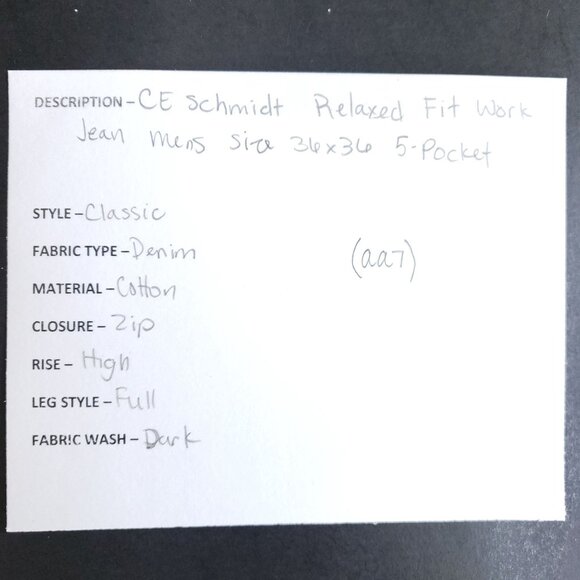 DESCRIPTION – CE Schmidt Relaxed Fit Work
Jean Mens Size 36x36 5-Pocket
STYLE – Classic
FABRIC TYPE – Denim
(aa7)
MATERIAL – Cotton
CLOSURE – Zip
RISE – High
LEG STYLE – Full
FABRIC WASH – Dark